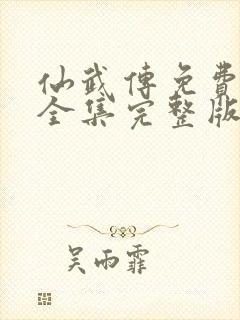 仙武傳免費
全集完整版
吴雨霏